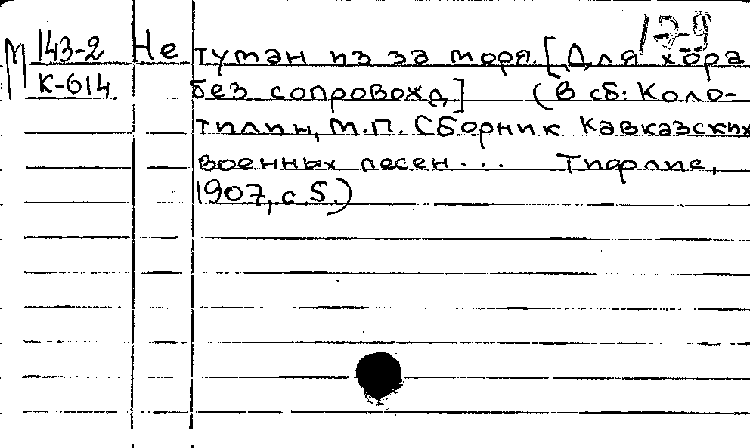 179
М 143-2 Не туман из за моря. [Для хора
К-614 без сопровожд] (В сб: Коло-
тилин, М.П. Сборник Кавказских
военных песен... Тифлис,
1907, с 5.)